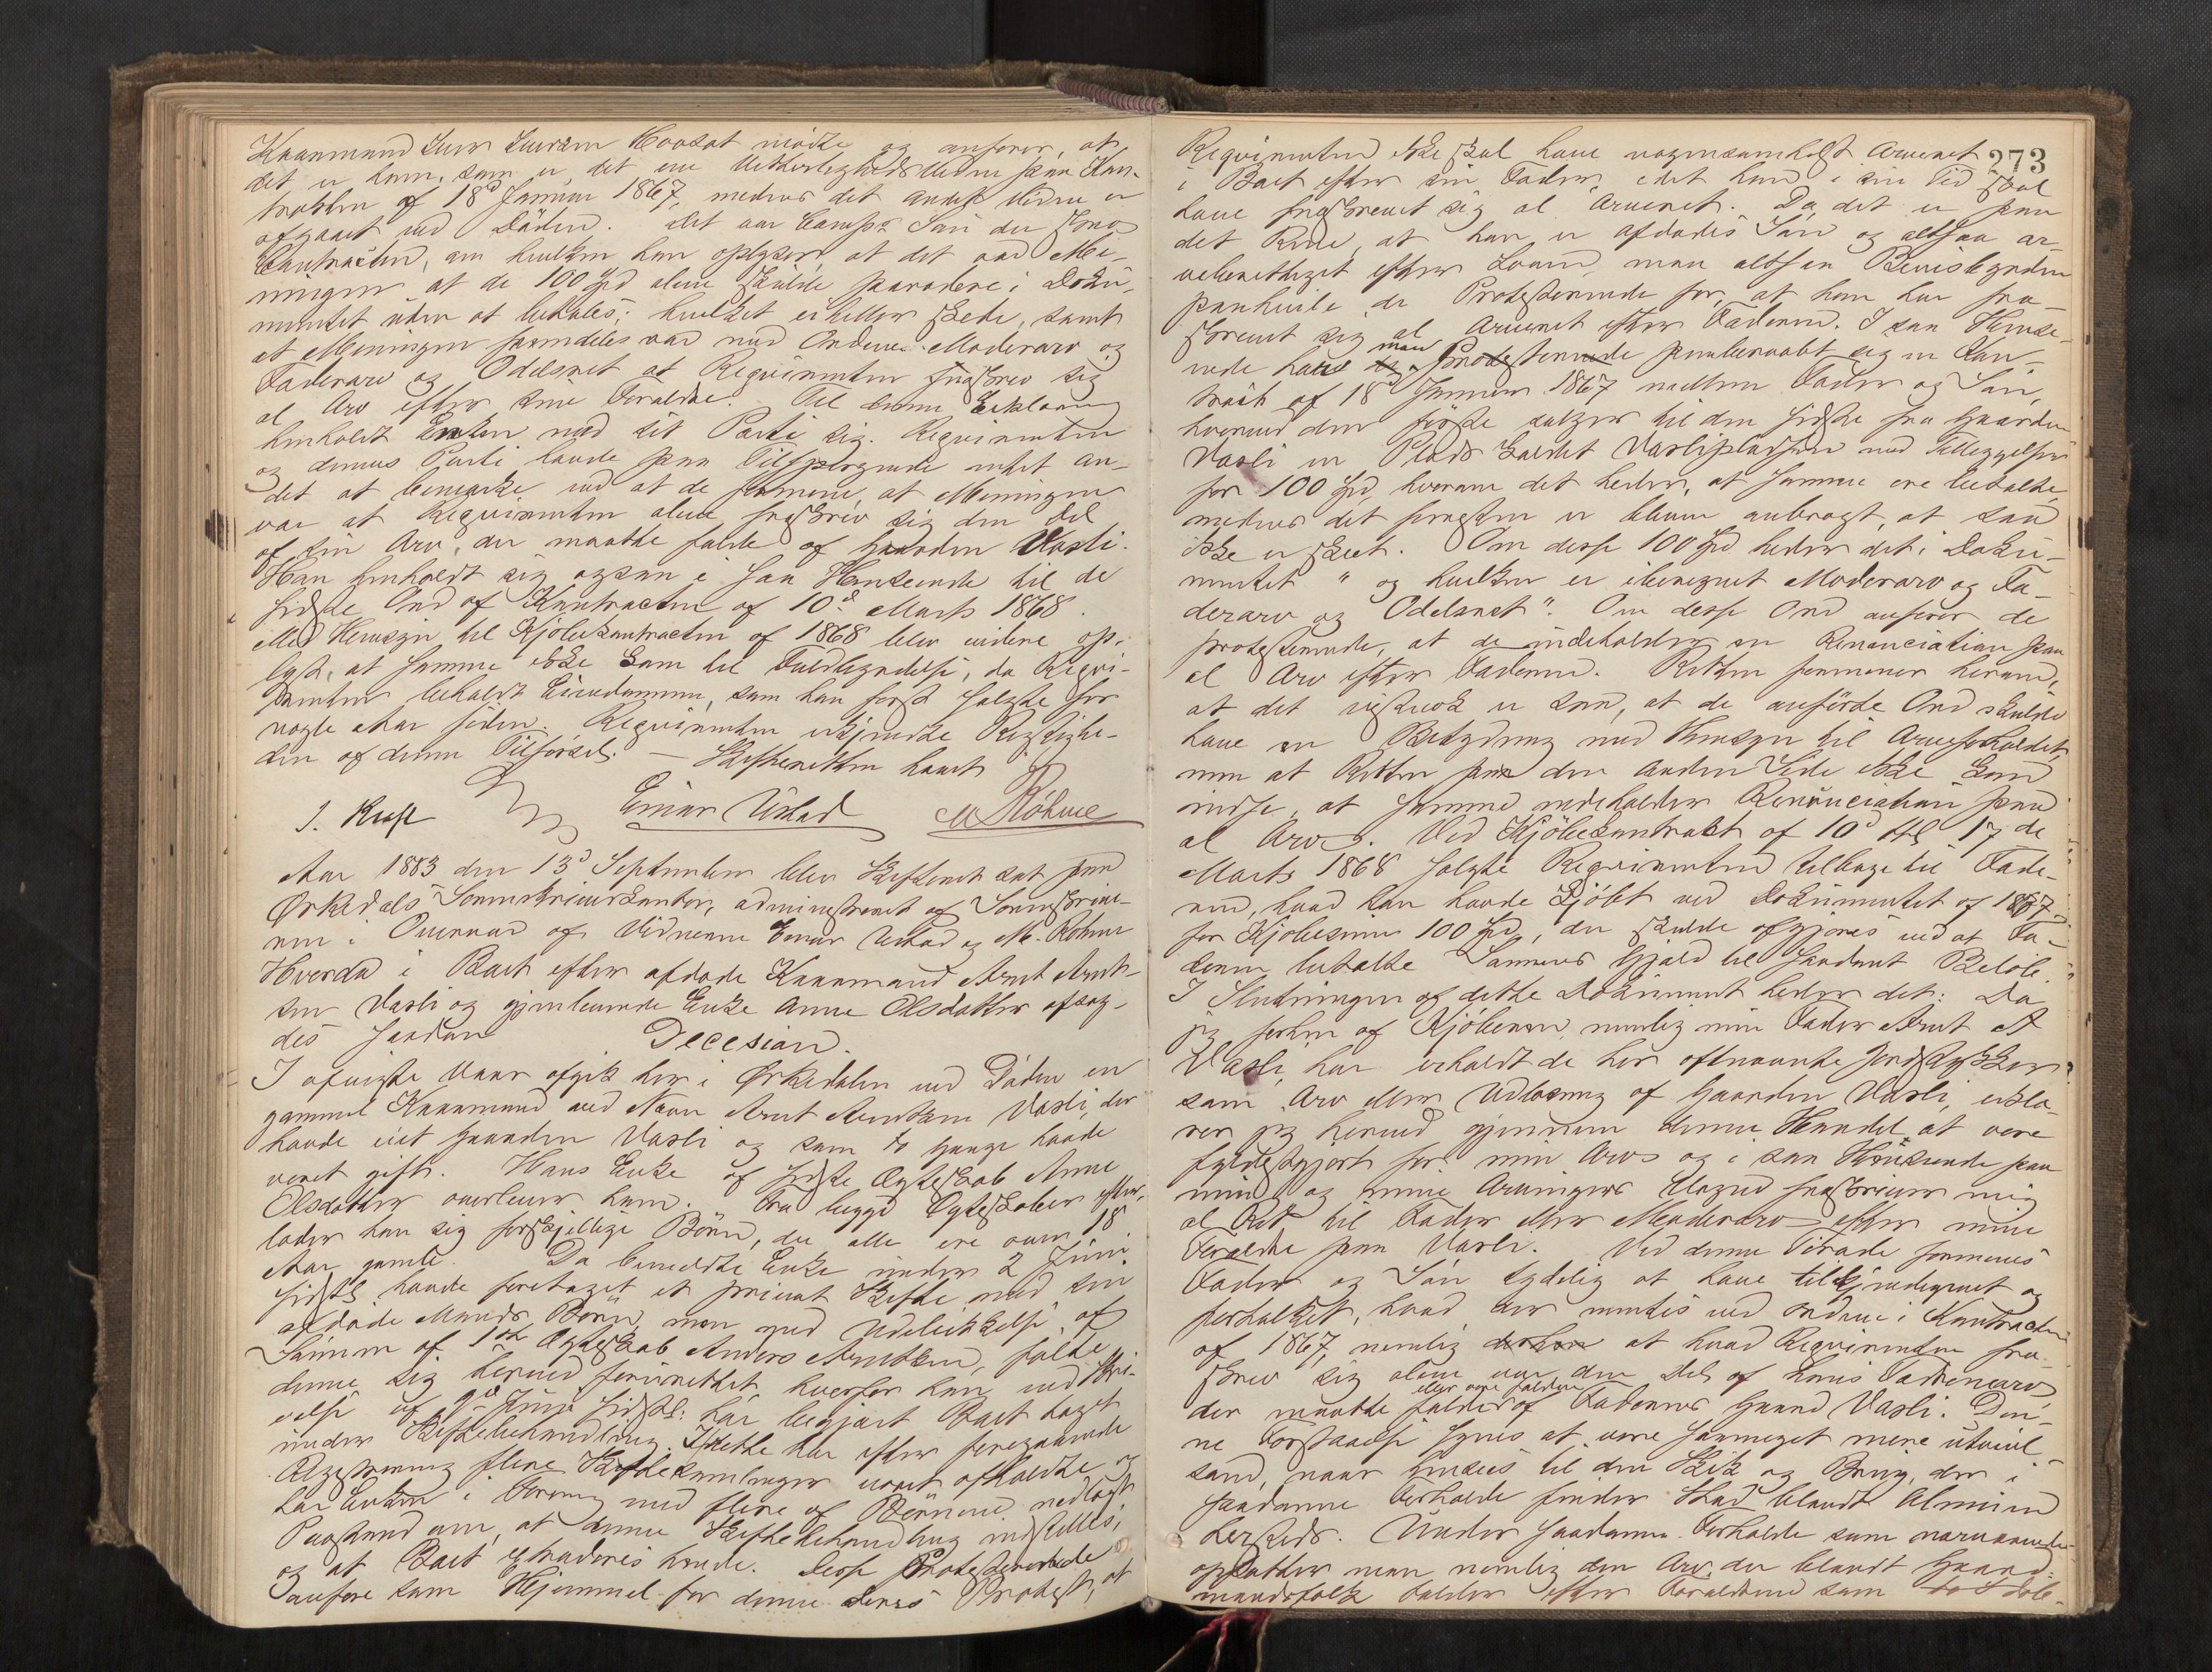 Kaarmand Lars Larsen Hoosat mødte og anfører, at
det er ham, som er det ene Vitterlighedsvidne paa Kon-
trakten af 18d Januar 1867, medens det andet Vidne er
afgaaet ved Døden. Det var Camps Søn der skrev
Contracten, om hvilken han oplyser at det var Me-
ningen at de 100 Spd alene skulde paradere i Doku-
mentet uden at betales; hvilket ei heller skede, samt
at Meningen fremdeles var med Ordene Moderarv og
Faderarv og Odelsret at Reqvirenten fraskrev sig
al Arv efter sine Forældre. Til denne Erklæring
henholdt Enken med sit Parti sig. Reqvirenten
og dennes Parti havde paa Tilspørgende intet an-
det at bemærke end at de formene, at Meningen
var at Reqvirenten alene fraskrev sig den Del
af sin Arv, der maatte falde af Gaarden Vasli.
Han henholdt sig ogsaa i saa Henseende til de
sidste Ord af Kontracten af 10d Marts 1868.
Med Hensyn til Kjøbekontracten af 1868 blev videre op-
lyst, at samme ikke kom til Fuldbyrdelse, da Reqvi-
renten beholdt Eiendommen, som han først solgte for
nogle Aar siden. Reqvirenten erkjendte Rigtighe-
den af denne Tilførsel. — Skifteretten hævet
J. Kraft Einar Ustad M Röhme
Aar 1883 den 13d September blev Skifteret sat paa
Ørkedals Sorenskriverkontor, administreret af Sorenskrive-
ren i Overvær af Vidnerne Einar Ustad og M. Röhme
Hvorda i Boet efter afdøde Kaarmand Arnt Arnt-
sen Vasli og gjenlevende Enke Anne Olsdatter afsag-
des saadan Decesion.
I afvigte Vaar afgik her i Ørkedalen ved Døden en
gammel Kaarmand ved Navn Arnt Arntsen Vasli, der
havde eiet Gaarden Vasli og som to Gange havde
været gift. Hans Enke af sidste Ægteskab Anne
Olsdatter overlever ham. Fra begge Ægteskaber efter-
lader han sig forskjellige Børn, der alle ere over 18
Aar gamle. Da bemeldte Enke under 2 Juni
sidstl. havde foretaget et privat Skifte med sin
afdøde Mands Børn, men med Udelukkelse af
Sønnen af 1ste Ægteskab Anders Arntsen, følte
denne sig herved forurettet, hvorfor han ved Skri-
velse af 9d Juni sidstl. har begjært Boet taget
under Skiftebehandling. I dette har efter foregaaende
Registrering flere Skiftesamlinger været afholdte og
har Enken i Forening med flere af Børnene nedlagt
Paastand om, at denne Skiftebehandling indstilles,
og at Boet extraderes hende. Disse Protesterende
anføre som Hjemmel for denne deres Protest, at
273
Reqvirenten ikke skal have nogensomhelst Arveret
i Boet efter sin Fader, idet han i sin Tid skal
have fraskrevet sig al Arveret. Da det er paa
det Rene, at han er afdødes Søn og altsaa ar-
veberettiget efter Loven, maa altsaa Bevisbyrden
paahvile de Protesterende for, at han har fra-
skrevet sig al Arveret efter Faderen. I saa Hense-
ende have de man Protesterende paaberaabt sig en Kon-
trakt af 18d Januar 1867 mellem Fader og Søn,
hvorved den første sælger til den sidste fra Gaarden
Vasli en Plads kaldet Vaslipladsen med Tilleggelser
for 100 Spd, hvorom det heder, at samme ere betalte,
medens det forresten er blevet anbragt, at saa
ikke er skeet. Om disse 100 Spd heder det i Doku-
mentet " og hvilken er iberegnet Moderarv og Fa-
derarv og Odelsret". Om disse Ord anfører de
protesterende, at de indeholder en Renunciation paa
al Arv efter Faderen. Retten formener herom,
at det vistnok er saa, at de anførte Ord skulde
have en Betydning med Hensyn til Arveforholdet,
men at Retten paa den anden Side ikke kan
indse, at samme indeholder Renunciation paa
al Arv. Ved Kjøbekontrakt af 10d til 17de
Marts 1868 solgte Reqvirenten tilbage til Fade-
ren, hvad han havde kjøbt ved Dokumentet af 1867
for Kjøbesum 100 Spd, der skulde afgjøres ved at Fa-
deren betalte Sønnens Gjæld til saadant Beløb.
I Slutningen af dette Dokument heder det: Da
jeg forhen af Kjøberen, nemlig min Fader Arnt A
Vasli, har erholdt de her oftnævnte Jordstykker
som Arv eller Udløsning af Gaarden Vasli, erklæ-
rer jeg herved gjennem denne Handel at være
fyldestgjort for min Arv og i saa Henseende paa
min og mine Arvingers Vegne fraskriver mig
al Ret til Fader eller Moderarv efter mine
Forældre paa Vasli. Ved denne Tirade formenes
Fader og Søn tydelig at have tilkjendegivet og
fortolket, hvad der mentes ved Ordene i Kontracten
af 1867, nemlig at hvad Reqvirenten fra-
skrev sig alene var den Del af hans Fædrenearv,
der maatte falde eller ere falden af Faderens Gaard Vasli. Den-
ne Forstaaelse synes at være saameget mere utvivl-
som, naar henses til den Skik og Brug, der i
saadanne Forholde finder Sted blandt Almuen
hersteds. Under saadanne Forholde som nærværende
opfatter man nemlig den Arv, der blandt Gaard-
mandsfolk falder efter Forældrene som to Dele-